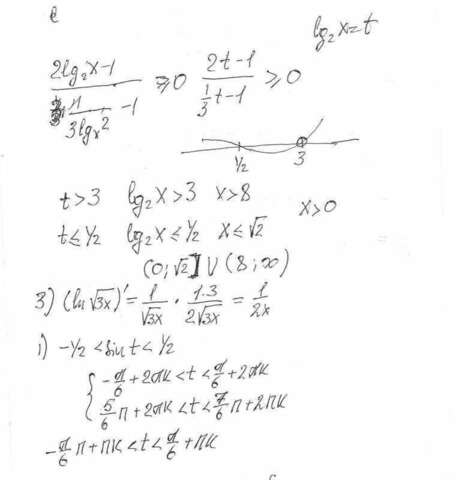 lg₂x=t
(2lg₂x-1)/(1/(3lgₓ2) -1) ≥0 (2t-1)/(1/3t-1) ≥0
1/2 3
t>3 lg₂x>3 x>8
x>0
t≤1/2 lg₂x≤1/2 x≤√2
(0;√2]∪(8;∞)
3) (ln√3x)'=1/√3x · 1·3/2√3x = 1/2x
1) -1/2<sint<1/2
{ -π/6+2πk<t<π/6+2πk
5/6π+2πk<t<7/6π+2πk
-π/6π+πk<t<π/6+πk